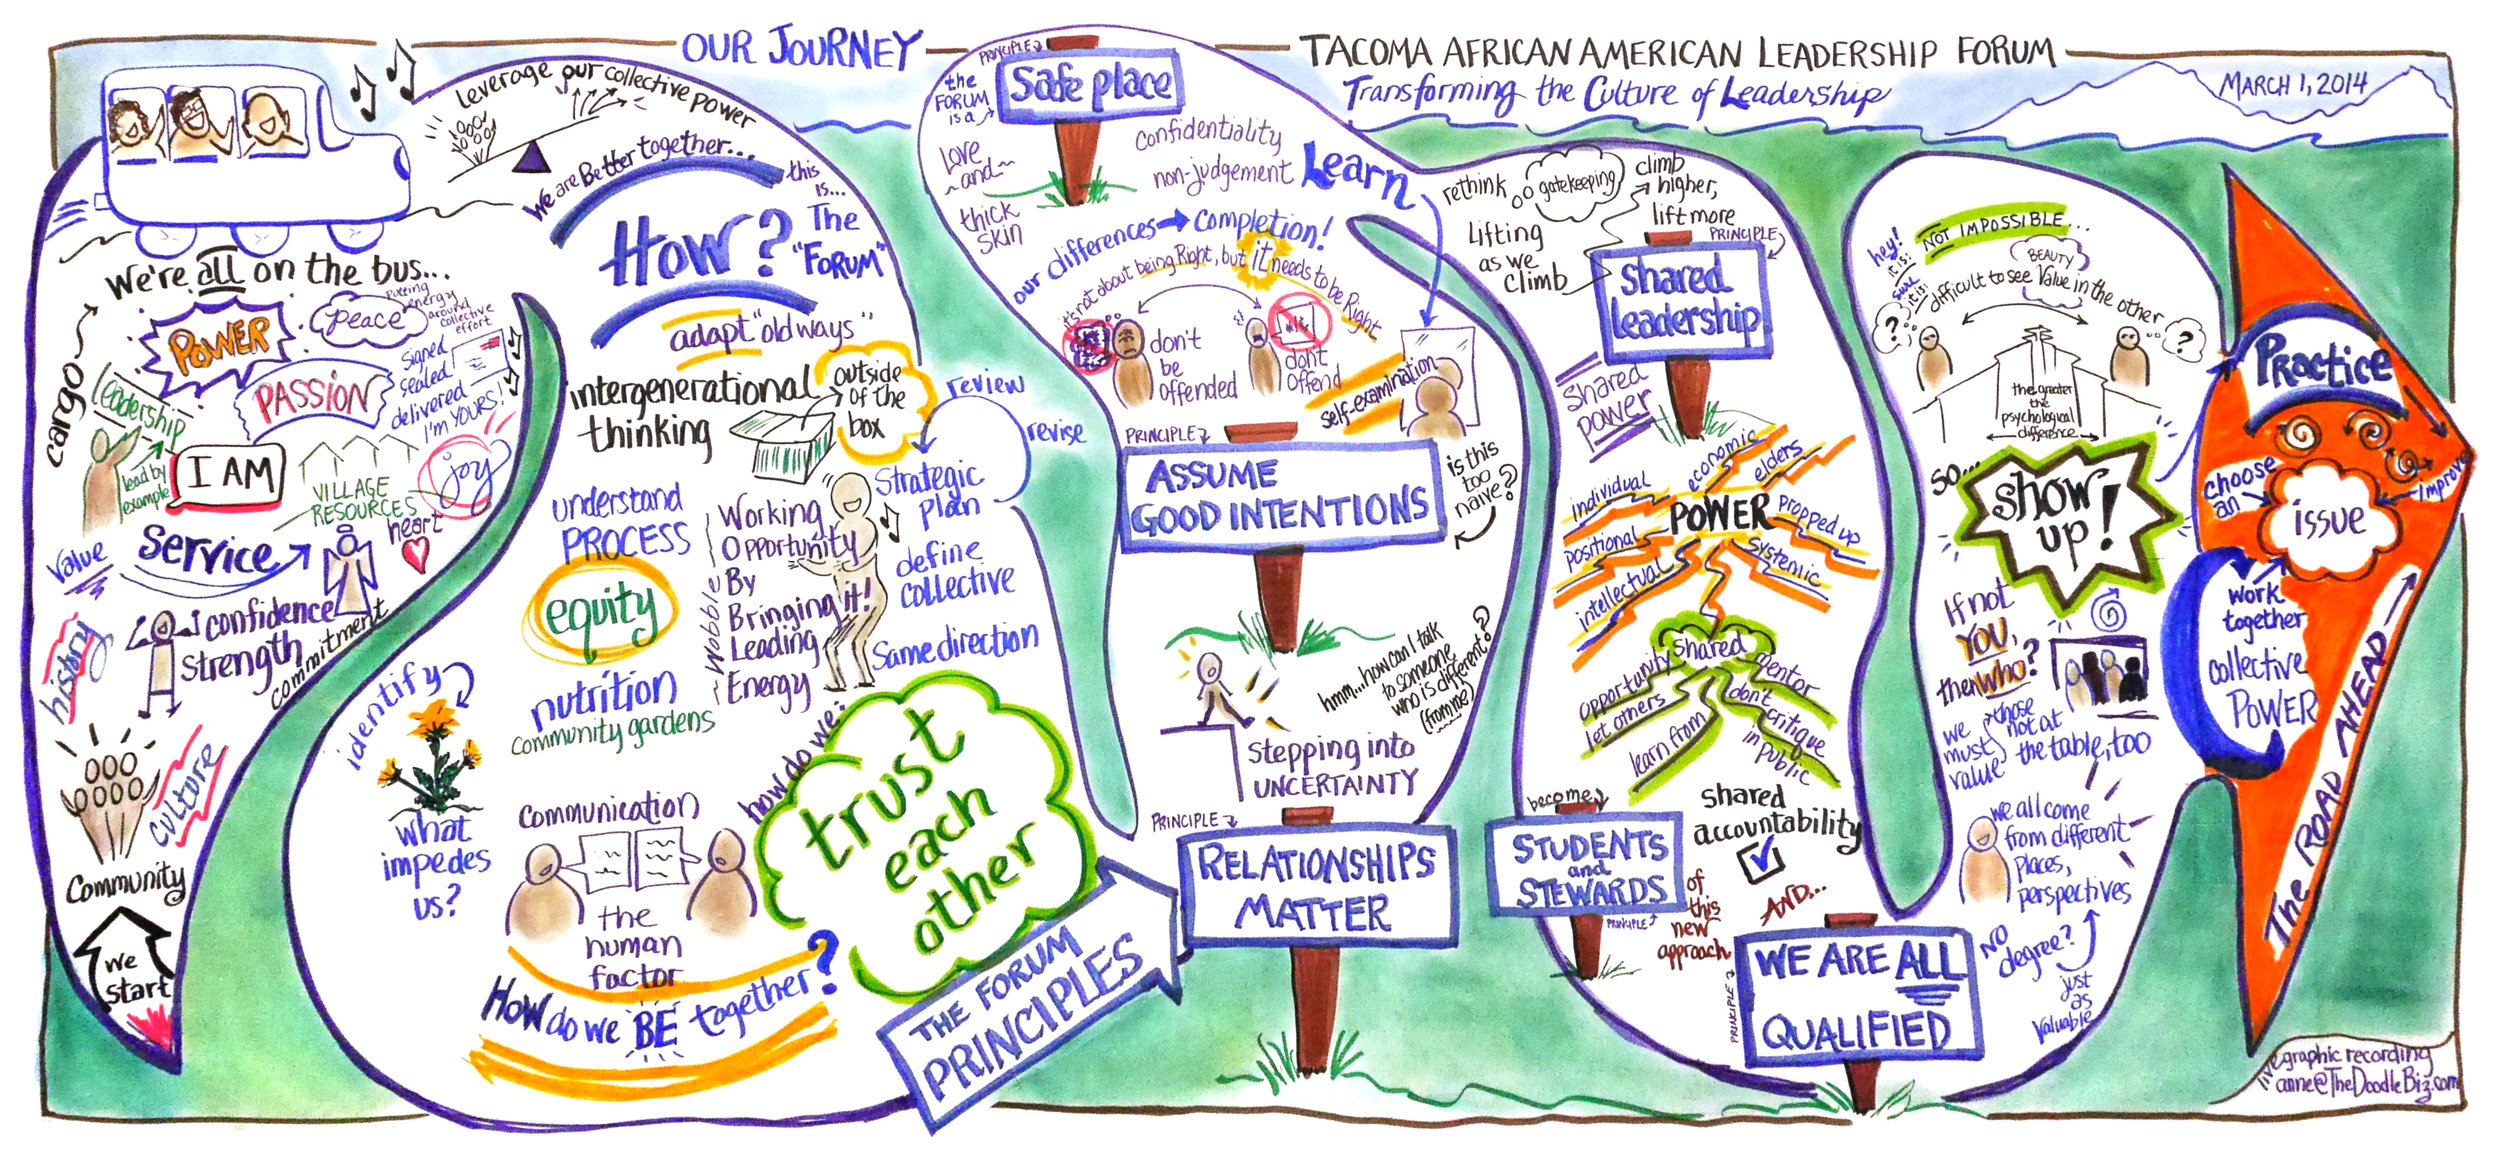 OUR JOURNEY
TACOMA AFRICAN AMERICAN LEADERSHIP FORUM
Transforming the Culture of Leadership
MARCH 1, 2014
We start
Community
culture
history
value
confidence
strength
commitment
Service
heart
I AM
VILLAGE
RESOURCES
joy
Leadership
lead by
example
cargo
PASSION
POWER
peace
putting
energy
around
collective
effort
signed
sealed
delivered
I'm YOURS!
We're all on the bus...
leverage our collective power
We are Better together...
this
is...
The
"FORUM"
How?
adapt "old ways"
intergenerational
thinking
outside
of the
box
review
revise
Strategic
plan
define
collective
Same direction
understand
PROCESS
equity
nutrition
community gardens
Wobble
Working
Opportunity
By
Bringing it!
Leading
Energy
identify
what
impedes
us?
Communication
the
human
factor
how do we:
trust
each
other
How do we BE together?
THE FORUM
PRINCIPLES
PRINCIPLE
RELATIONSHIPS
MATTER
Stepping into
UNCERTAINTY
hmm...how can I talk
to someone
who is different?
(from me)
PRINCIPLE
ASSUME
GOOD INTENTIONS
is this
too
naive?
don't
be
offended
don't
offend
self-examination
it's not about being Right, but it needs to be Right
our differences → completion!
PRINCIPLE
the
FORUM
is a
Safe place
Love
-and-
thick
skin
confidentiality
non-judgement
Learn
rethink
gatekeeping
climb
higher,
lift more
Lifting
as we
climb
PRINCIPLE
shared
leadership
shared
power
POWER
individual
positional
intellectual
economic
elders
propped up
systemic
shared
opportunity
let others
learn from
mentor
don't
critique
in public
shared
accountability
AND...
become
STUDENTS
and
STEWARDS
PRINCIPLE
of
this
new
approach
PRINCIPLE
WE ARE ALL
QUALIFIED
NO
degree?
just
as
valuable
we all come
from different
places,
perspectives
If not
YOU,
then who?
we
must
value
those
not at
the table, too
so...
show
up!
the greater
the
psychological
difference
difficult to see Value in the other
BEAUTY
NOT IMPOSSIBLE...
hey!
it is!
sure
it is!
?
?
Practice
choose
an
issue
improve
work
together
collective
POWER
The ROAD AHEAD
live graphic recording
anne@TheDoodleBiz.com